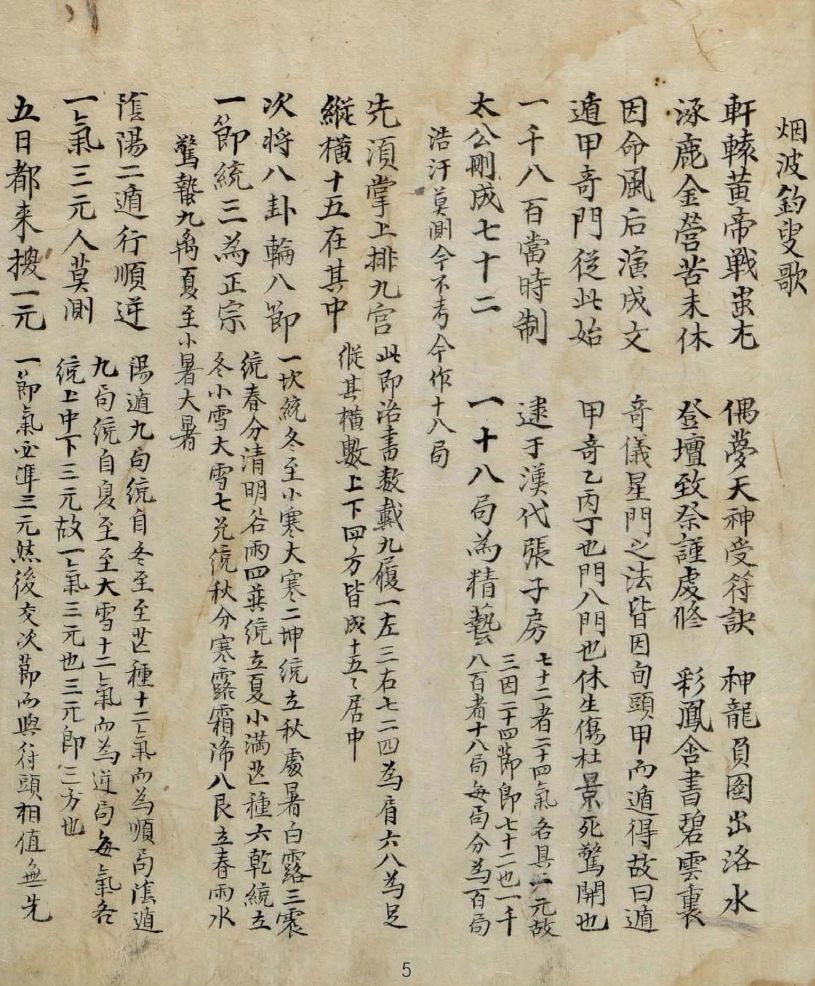 烟波釣叟歌
軒轅黃帝戰蚩尤 偶夢天神受符訣 神龍負圖出洛水
涿鹿金營苦未休 登壇致祭謹虔修 彩鳳含書碧雲裏
因命風后演成文 奇儀星門之法皆因旬頭甲而遁得故曰遁
遁甲奇門從此始 甲奇乙丙丁也門八門也休生傷杜景死驚開也
一千八百當時制 逮于漢代張子房 七十二者二十四氣各具三元故
三因二十四節即七十二也一千
太公刪成七十二 一十八局為精藝 八百者十八局每局分為百局
浩汗莫測今不考今作十八局
先湏掌上排九宮 此即洛書數戴九履一左三右七二四為肩六八為足
縱橫十五在其中 縱其橫數上下四方皆成十五々居中
次將八卦輪八節 一坎統冬至小寒大寒二坤統立秋處暑白露三震
統春分清明谷雨四巽統立夏小滿芒種六乾統立
一節統三為正宗 冬小雪大雪七兌統秋分寒露霜降八艮立春雨水
驚蟄九离夏至小暑大暑
陰陽二遁行順逆 陽遁九局統自冬至至芒種十二氣而為順局陰遁
九局統自夏至至大雪十二氣而為逆局每氣各
一氣三元人莫測 統上中下三元故一氣三元也三元即三方也
五日都来換一元 一節氣必準三元然後交次節而與符頭相值無先
5